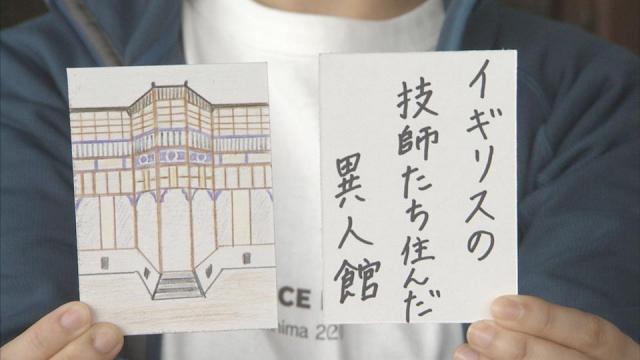 イギリスの
技師たち住んだ
異人館
CE
hima 20